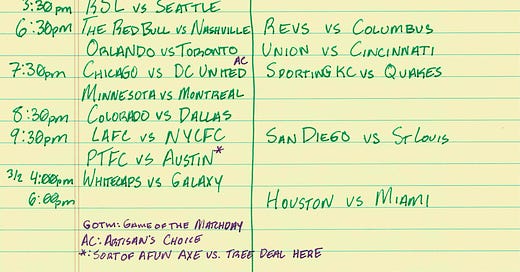 3:30pm RSL vs SEATTLE
6:30pm THE RED BULL vs NASHVILLE REVS vs COLUMBUS
ORLANDO vs TORONTO UNION vs CINCINNATI
7:30pm CHICAGO vs DC UNITED AC SPORTING KC vs QUAKES
MINNESOTA vs MONTREAL
8:30pm COLORADO vs DALLAS
9:30pm LAFC vs NYCFC SAN DIEGO vs St LOUIS
PTFC vs AUSTIN*
3/2 4:00pm WHITECAPS vs GALAXY
6:00pm HOUSTON vs MIAMI
GOTM: GAME OF THE MATCHDAY
AC: ARTISAN'S CHOICE
*: SORT OF A FUN AXE VS. TREE DEAL HERE